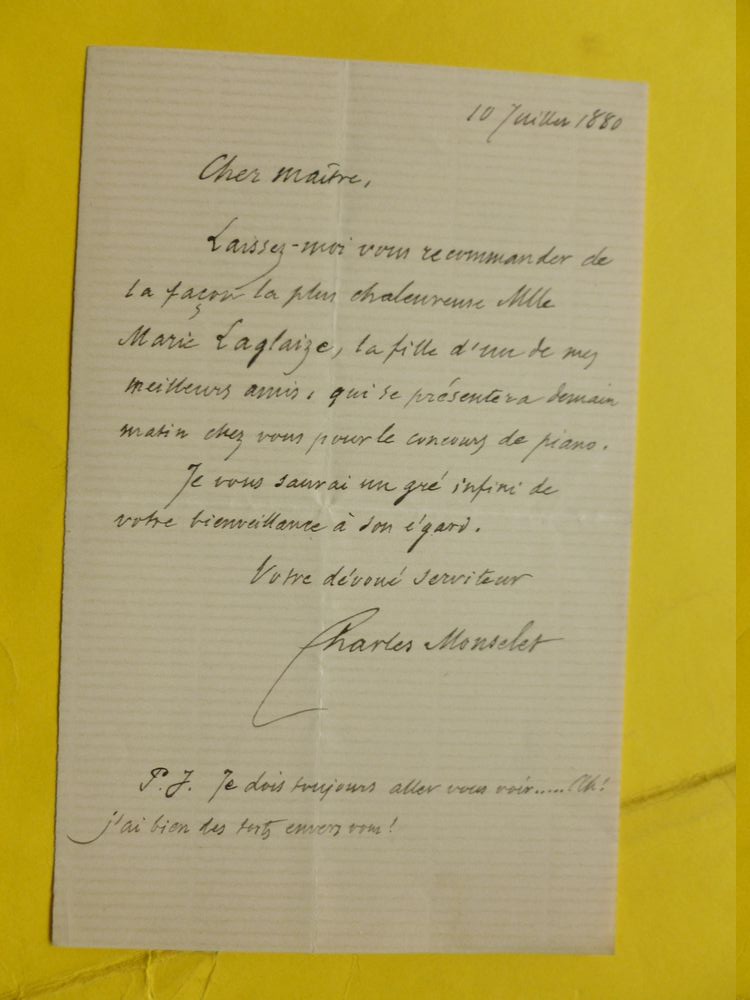 10 Juillet 1880
Cher maître,
Laissez-moi vous recommander de
la façon la plus chaleureuse Mlle
Marie Laglaize, la fille d'un de mes
meilleurs amis, qui se présentera demain
matin chez vous pour le concours de piano.
Je vous saurai un gré infini de
votre bienveillance à son égard.
Votre dévoué serviteur
Charles Monselet
P.S. Je dois toujours aller vous voir..... Ah!
j'ai bien des torts envers vous!